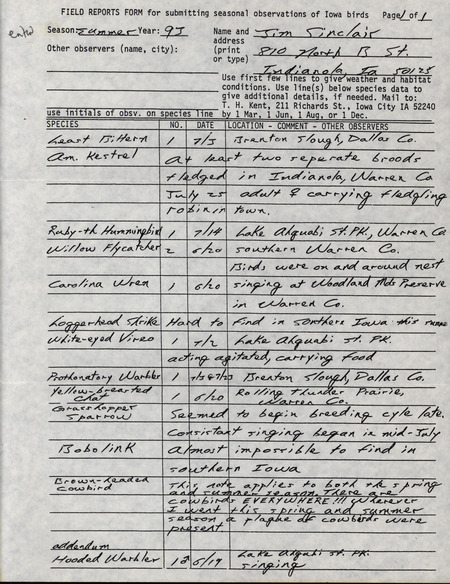 FIELD REPORTS FORM for submitting seasonal observations of Iowa birds Page 1 of 1
Season: Summer Year: 93 Name and Jim Sinclair
Other observers (name, city): address 810 North B St.
(print
or type) Indianola, Ia 50125
Use first few lines to give weather and habitat
conditions. Use line(s) below species data to
give additional details, if needed. Mail to:
T. H. Kent, 211 Richards St., Iowa City IA 52240
use initials of obsv. on species line by 1 Mar, 1 Jun, 1 Aug, or 1 Dec.
SPECIES NO. DATE LOCATION - COMMENT - OTHER OBSERVERS
Least Bittern 1 7/3 Brenton Slough, Dallas Co.
Am. Kestrel At least two separate broods
fledged in Indianola, Warren Co
July 25 adult ♀ carrying fledgling
robin in town.
Ruby-th Hummingbird 1 7/14 Lake Ahquabi St. PK., Warren Co
Willow Flycatcher 2 6/20 southern Warren Co.
Birds were on and around nest
Carolina Wren 1 6/20 singing at Woodland Mds Preserve
in Warren Co.
Loggerhead Shrike Hard to find in southern Iowa this
White-eyed Vireo 1 7/2 Lake Ahquabi St. PK
acting agitated, carrying food
Prothonotary Warbler 1 7/3 & 7/23 Brenton Slough, Dallas Co.
Yellow-breasted chat 1 6/20 Rolling Thunder Prairie, Warren Co.
Grasshopper sparrow Seemed to begin breeding cyle late.
Consistant singing began in mid-July
Bobolink Almost impossible to find in
southern Iowa
Brown-headed cowbird This note applies to both the spring
and summer season. There are
cowbirds EVERYWHERE!!! Wherever
I went this spring and summer
season, a plague of cowbirds were
present.
addendum
Hooded Warbler 1♂ 5/19 Lake Ahquabi St. PK.
singing